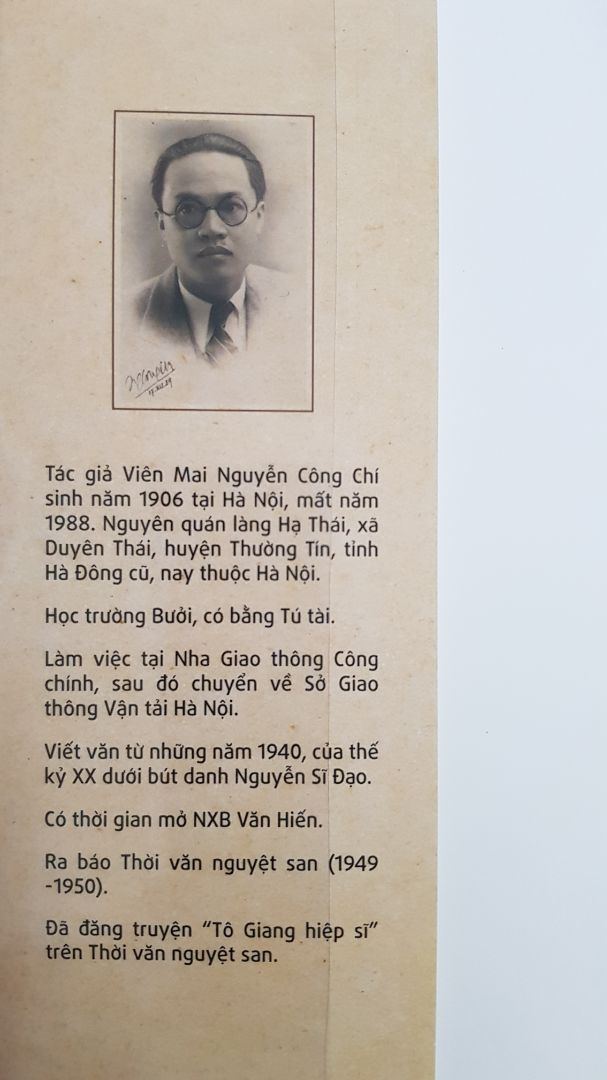 17.XII.29
Tác giả Viên Mai Nguyễn Công Chí
sinh năm 1906 tại Hà Nội, mất năm
1988. Nguyên quán làng Hạ Thái, xã
Duyên Thái, huyện Thường Tín, tỉnh
Hà Đông cũ, nay thuộc Hà Nội.
Học trường Bưởi, có bằng Tú tài.
Làm việc tại Nha Giao thông Công
chính, sau đó chuyển về Sở Giao
thông Vận tải Hà Nội.
Viết văn từ những năm 1940, của thế
kỷ XX dưới bút danh Nguyễn Sĩ Đạo.
Có thời gian mở NXB Văn Hiến.
Ra báo Thời văn nguyệt san (1949
-1950).
Đã đăng truyện “Tô Giang hiệp sĩ”
trên Thời văn nguyệt san.